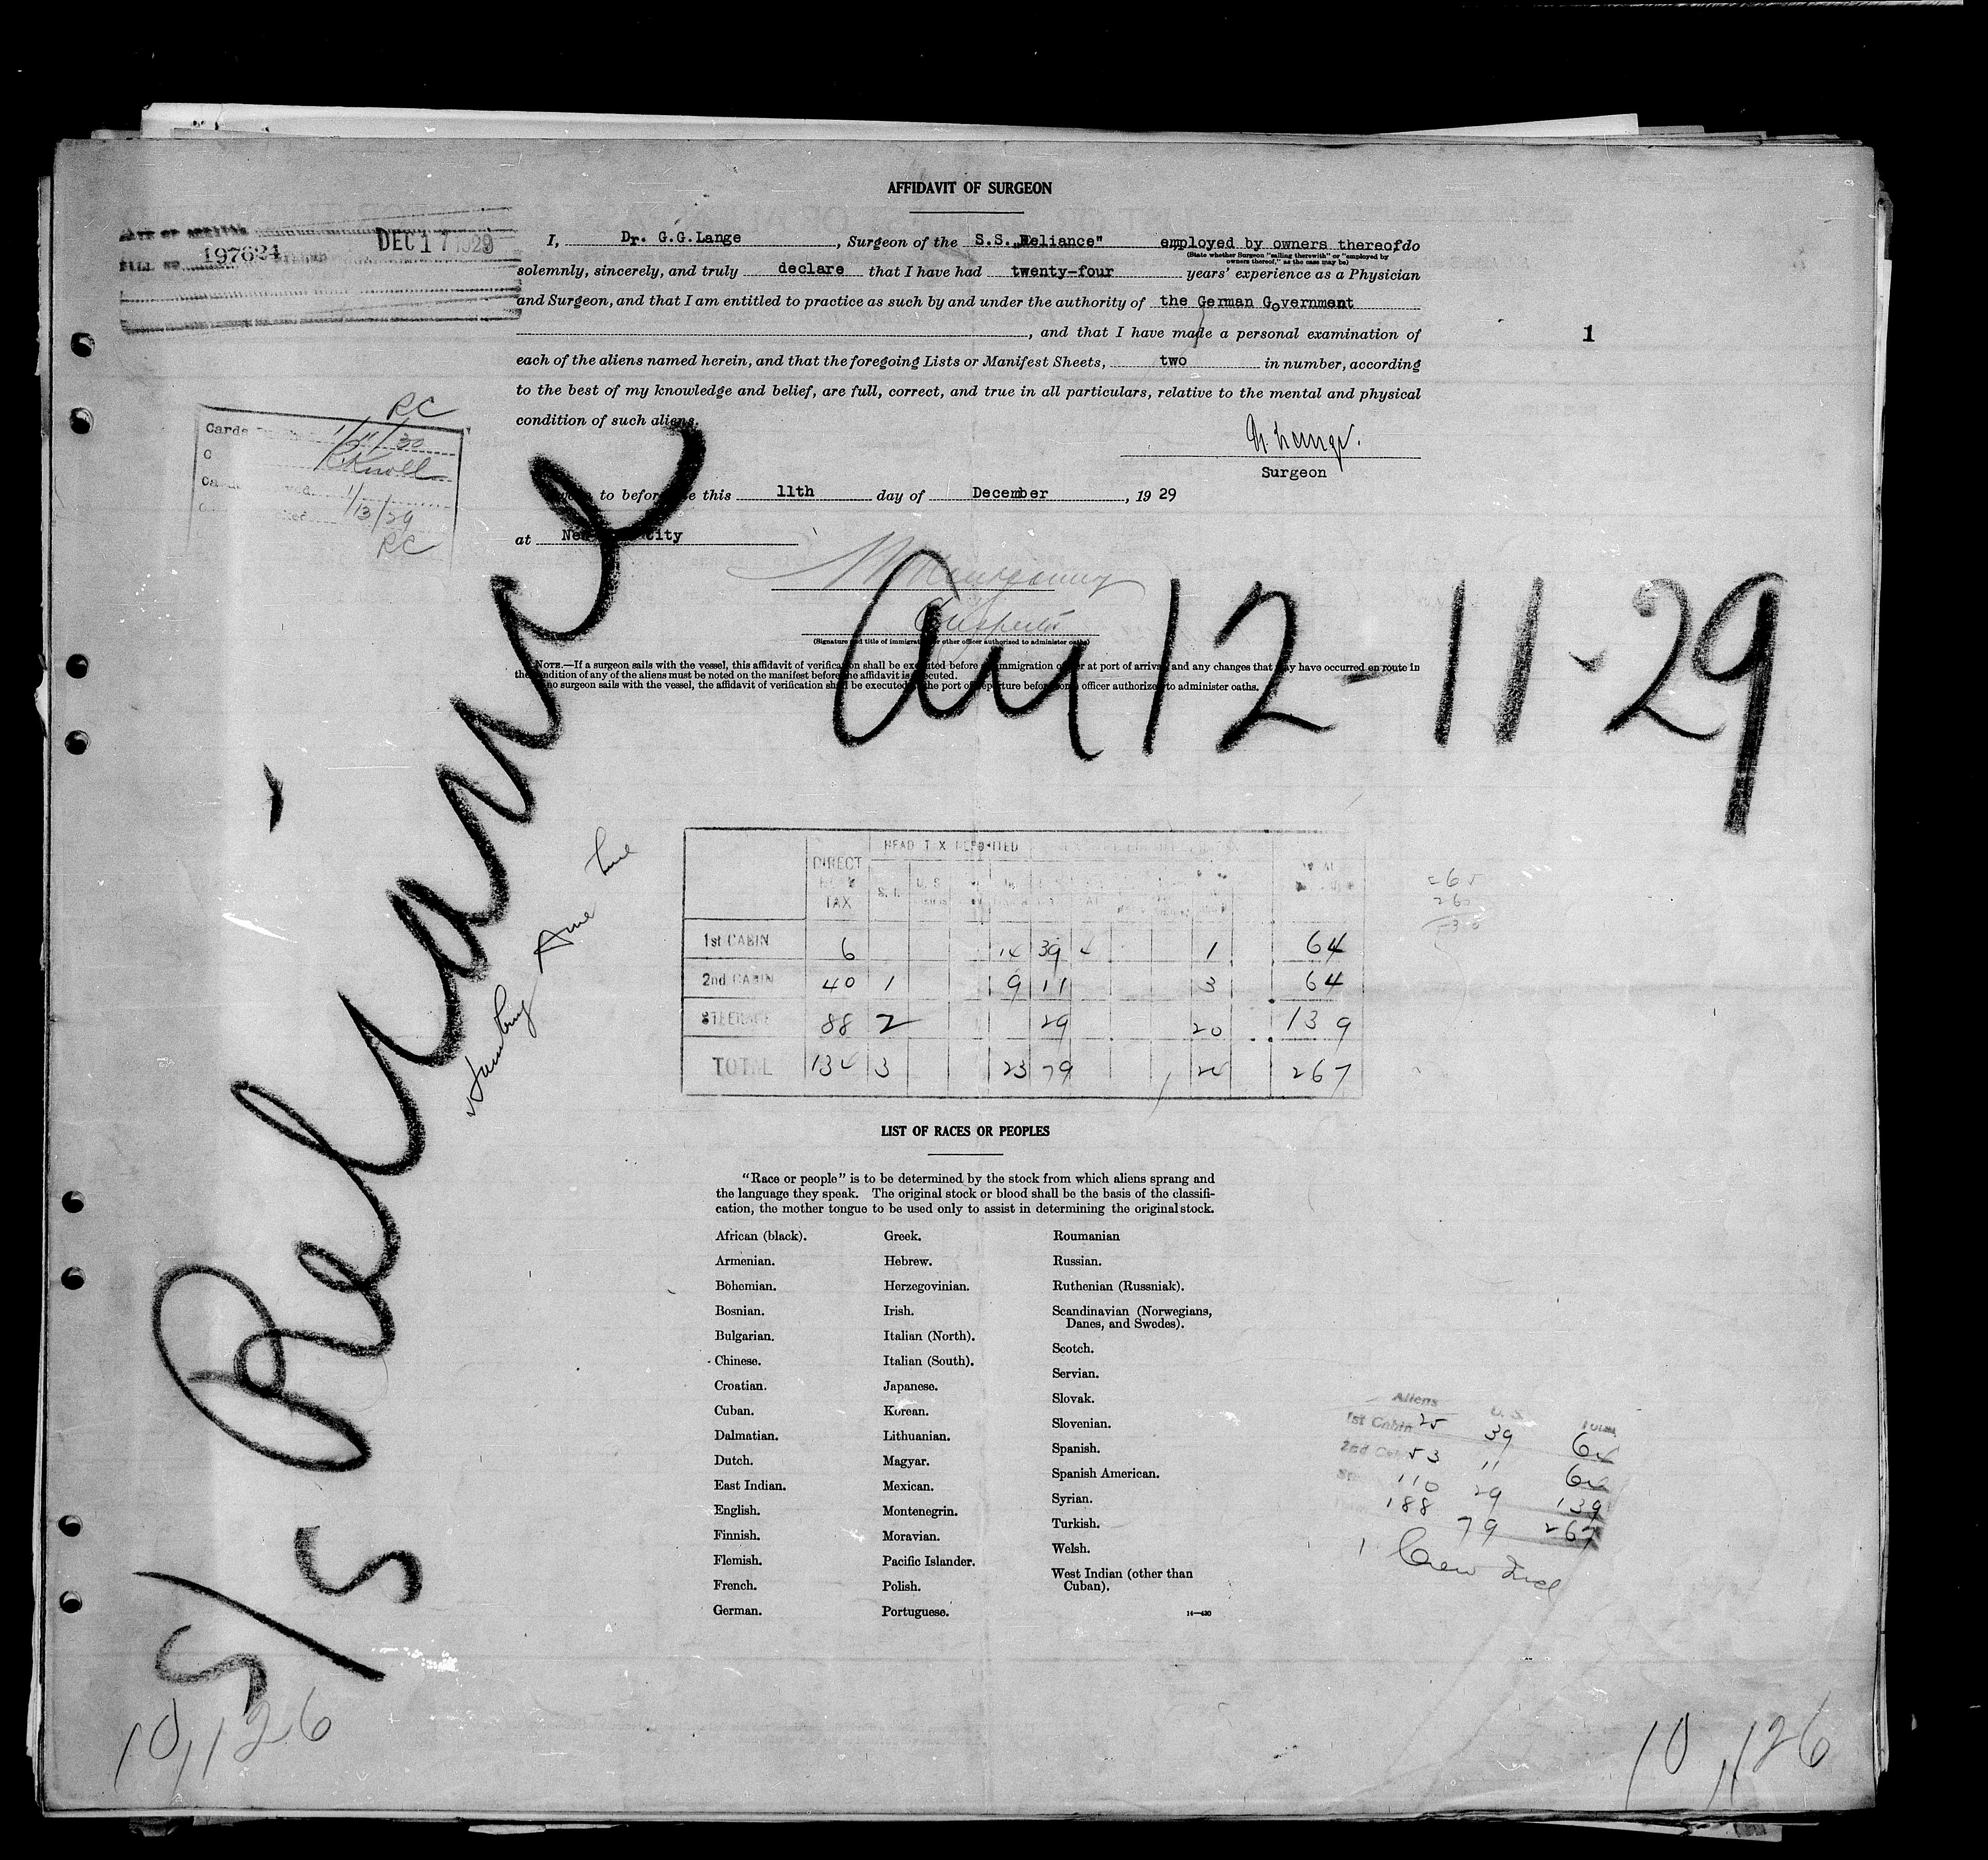 AFFIDAVIT OF SURGEON
DATE OF ARRIVAL DEC 17 1929
BILL NO. 197624
I, Dr. G.G.Lange, Surgeon of the S.S. „Reliance" employed by owners thereof do
(State whether Surgeon "sailing therewith" or "employed by
owners thereof," as the case may be)
solemnly, sincerely, and truly declare that I have had twenty-four years' experience as a Physician
and Surgeon, and that I am entitled to practice as such by and under the authority of the German Government
, and that I have made a personal examination of
1
each of the aliens named herein, and that the foregoing Lists or Manifest Sheets, two in number, according
to the best of my knowledge and belief, are full, correct, and true in all particulars, relative to the mental and physical
condition of such aliens.
Surgeon
RC
Cards 1/11/30
R Knoll
1/13/29
RC
to before me this 11th day of December, 19 29
at New City
Montgomery
Inspector
(Signature and title of immigrant or other officer authorized to administer oaths)
NOTE.—If a surgeon sails with the vessel, this affidavit of verification shall be executed before immigration officer at port of arrival, and any changes that may have occurred en route in
the condition of any of the aliens must be noted on the manifest before the affidavit is executed.
no surgeon sails with the vessel, the affidavit of verification shall be executed at the port of departure before some officer authorized to administer oaths.
S/S Reliance
Arr 12-11-29
Hamburg Ame Line
HEAD TAX DEPOSITED
DIRECT TAX S.I. U.S.
1st CABIN 6 14 39 4 1 64
2nd CABIN 40 1 9 11 3 64
STEERAGE 88 2 29 20 139
TOTAL 134 3 23 79 24 267
LIST OF RACES OR PEOPLES
"Race or people" is to be determined by the stock from which aliens sprang and
the language they speak. The original stock or blood shall be the basis of the classifi-
cation, the mother tongue to be used only to assist in determining the original stock.
African (black).
Armenian.
Bohemian.
Bosnian.
Bulgarian.
Chinese.
Croatian.
Cuban.
Dalmatian.
Dutch.
East Indian.
English.
Finnish.
Flemish.
French.
German.
Greek.
Hebrew.
Herzegovinian.
Irish.
Italian (North).
Italian (South).
Japanese.
Korean.
Lithuanian.
Magyar.
Mexican.
Montenegrin.
Moravian.
Pacific Islander.
Polish.
Portuguese.
Roumanian
Russian.
Ruthenian (Russniak).
Scandinavian (Norwegians,
Danes, and Swedes).
Scotch.
Servian.
Slovak.
Slovenian.
Spanish.
Spanish American.
Syrian.
Turkish.
Welsh.
West Indian (other than
Cuban).
14—430
Aliens U.S. TOTAL
1st Cabin 25 39 64
2nd Cabin 53 11 64
110 29 139
188 79 267
1 Crew Incl
10,126
10,126